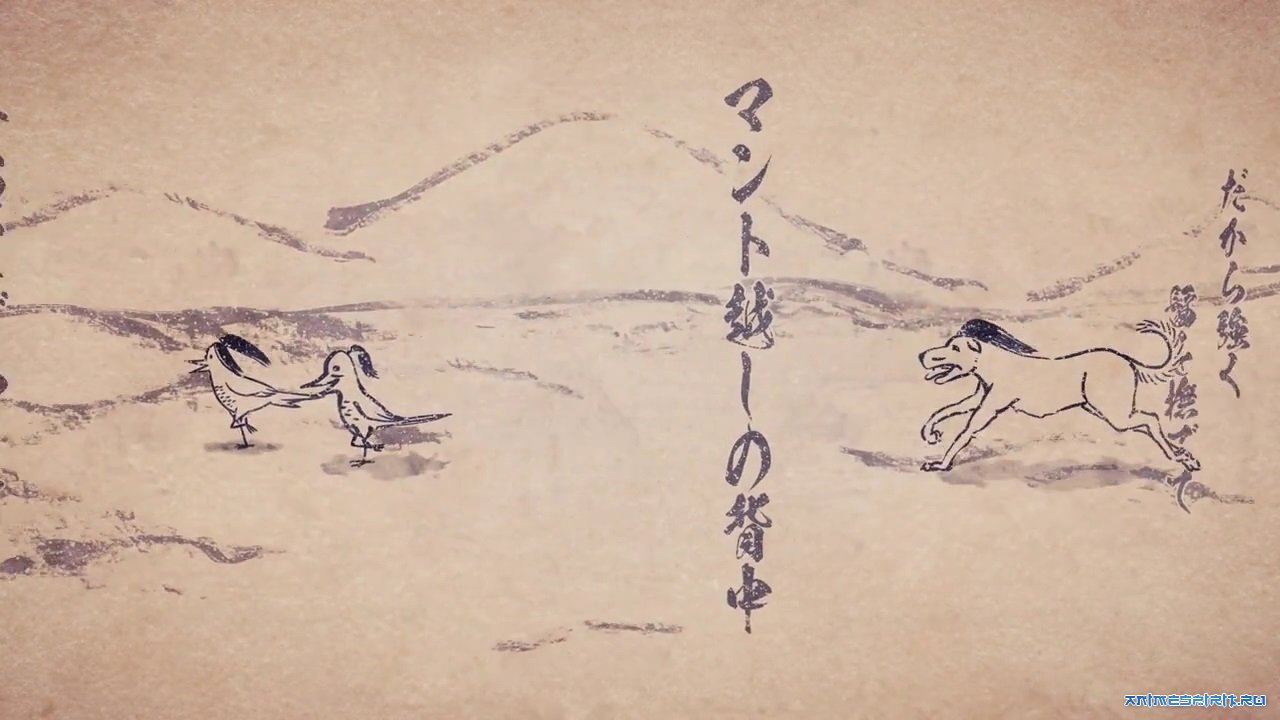 だから強く
撫でて
マント越しの背中
ANIMESPIRIT.RU